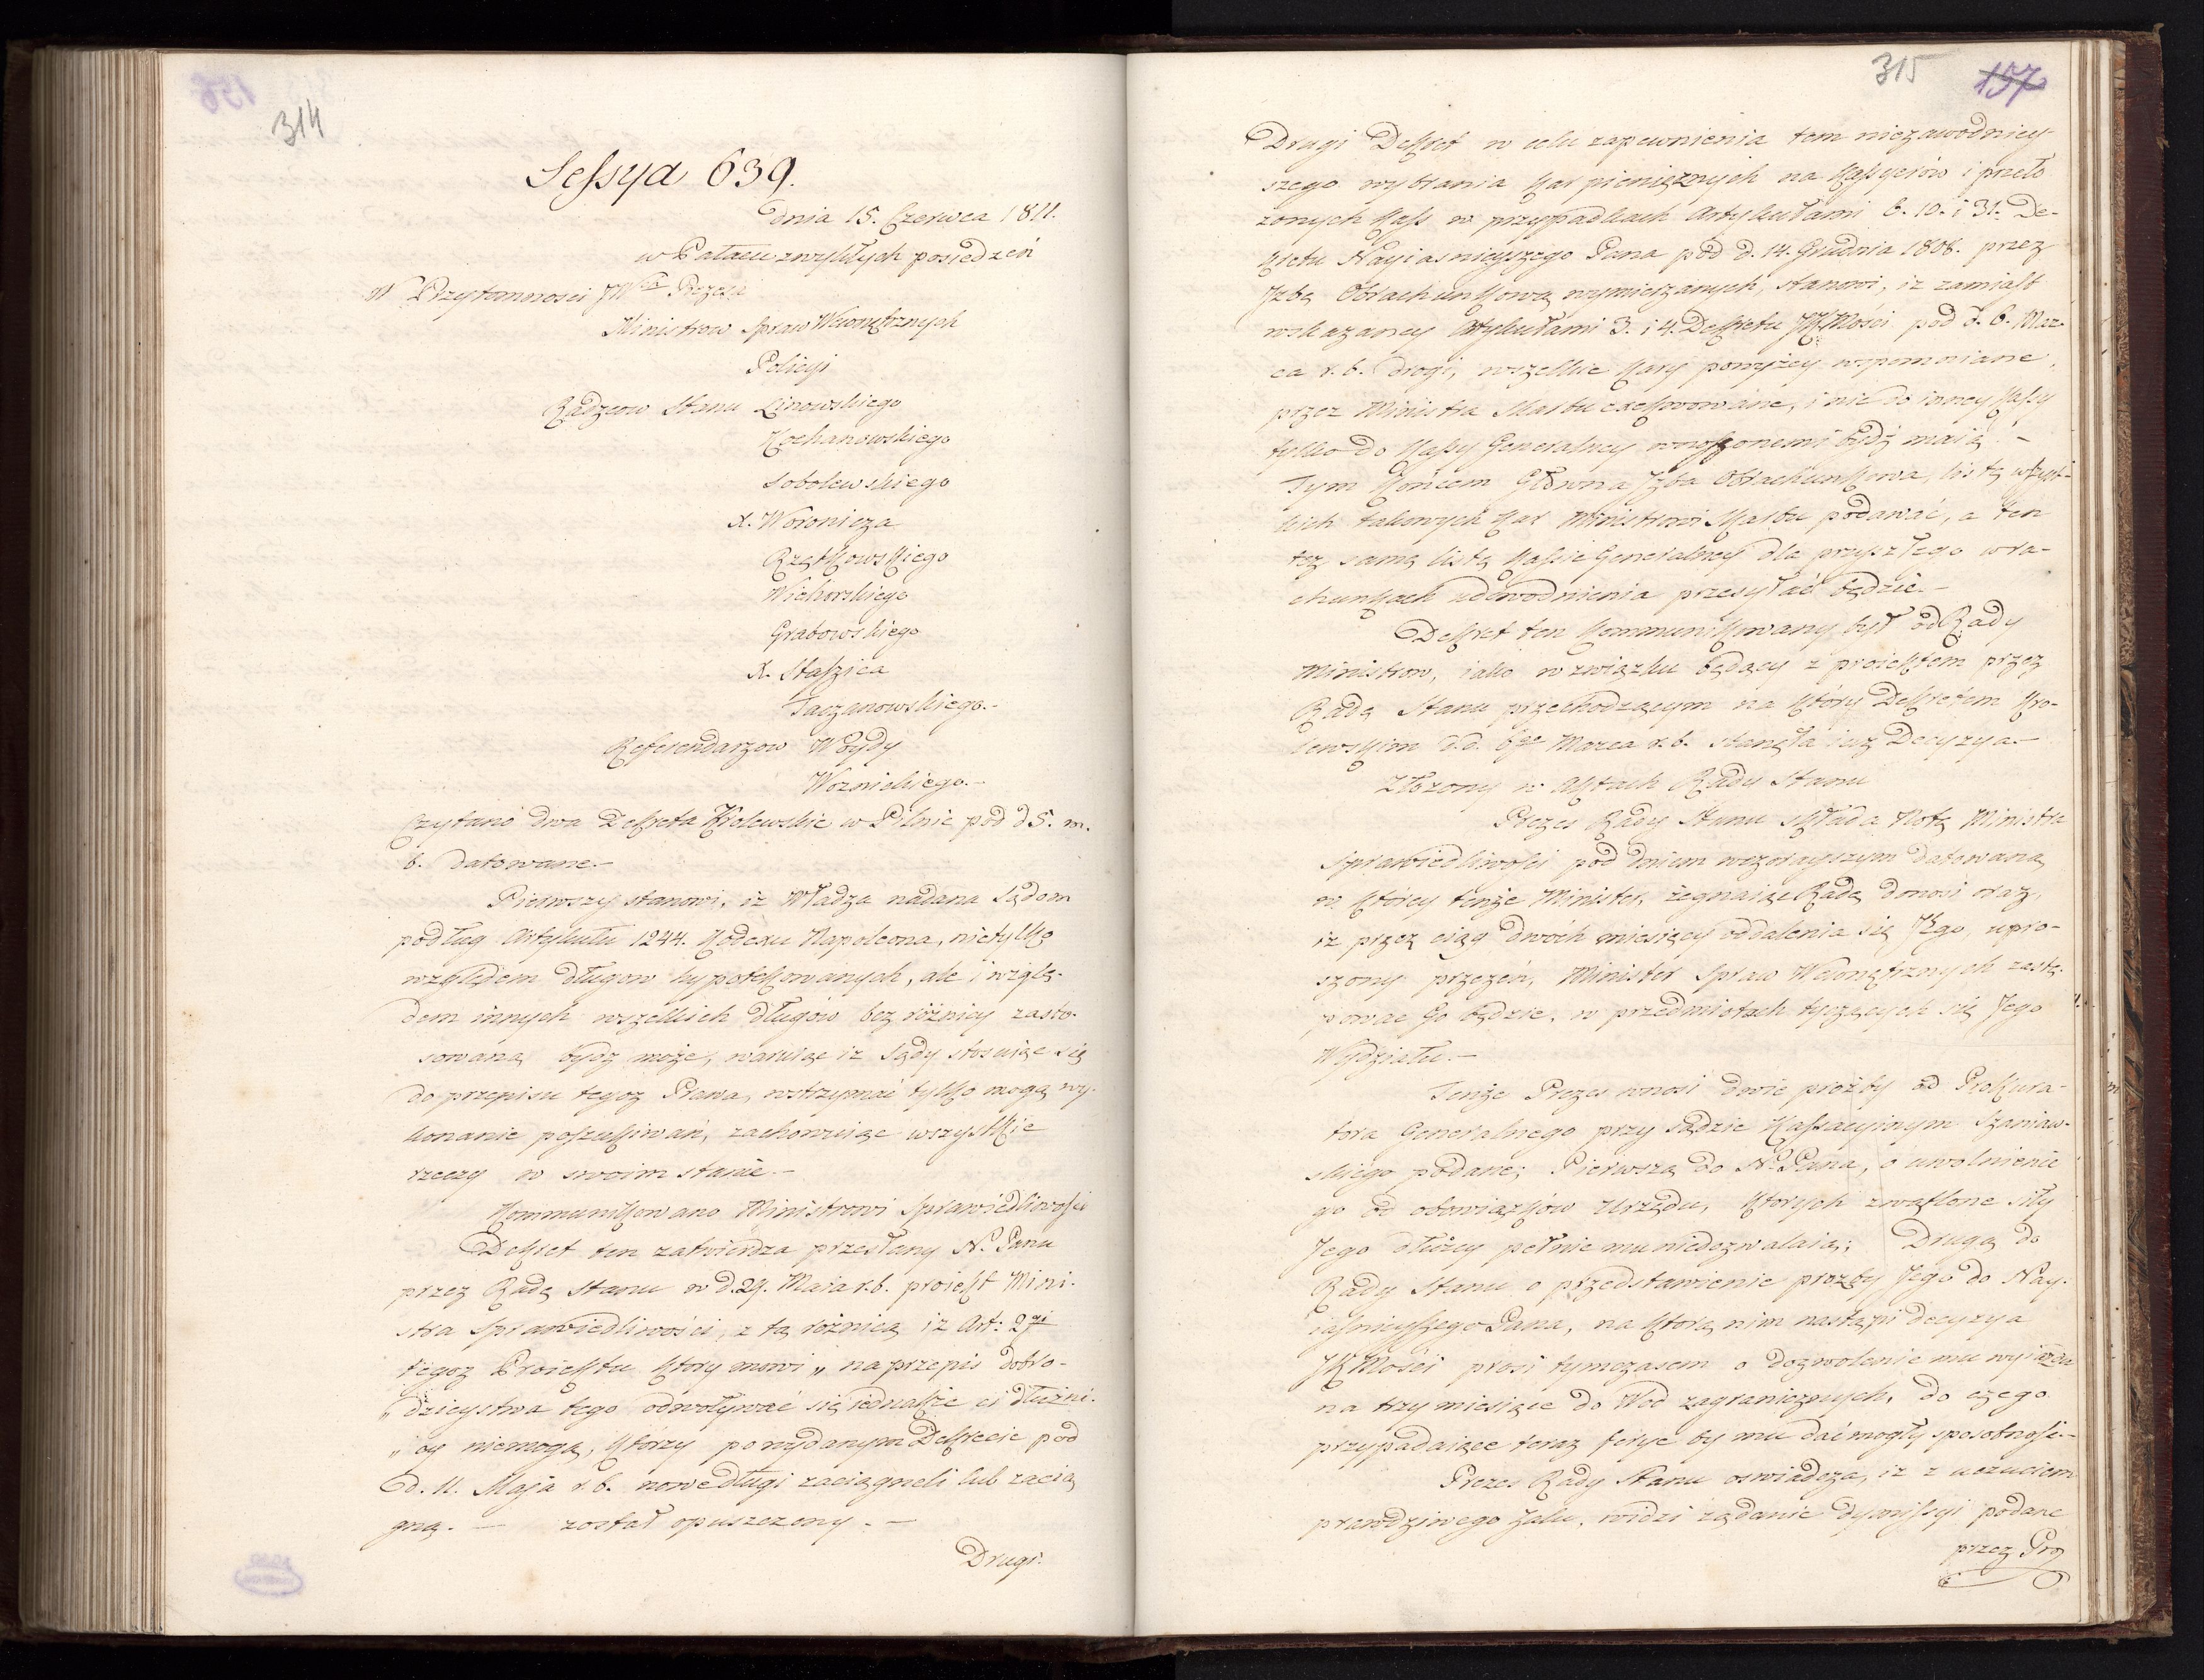 314
Sessya 639.
dnia 15. Czerwca 1811.
w Pałacu zwykłych posiedzeń
W Przytomności JW Prezesa
Ministrow Spraw Wewnętrznych
Policyi
Radzcow Stanu Linowskiego
Kochanowskiego
Sobolewskiego
X. Woronicza
Rzętkowskiego
Wichorskiego
Grabowskiego
X. Staszica
Taczanowskiego.-
Referendarzow Woydy
Woznickiego.-
Czytano dwa Dekreta Krolewskie w Pilnie pod d 5. m.
b. datowane.-
Pierwszy stanowi, iż Władza nadana Sądom
podług Artykułu 1244. Kodexu Napoleona, nietylko
względem długow hypotekowanych, ale i wzglę-
dem innych wszelkich długów bez różnicy zasto-
sowaną bydz może, waruiąc iz Sądy stosuiąc się
do przepisu tegoz Prawa, wstrzymać tylko mogą wy-
konanie poszukiwań, zachowuiąc wszystkie
rzeczy w swoim stanie.-
Kommunikowano Ministrowi Sprawiedliwości
Dekret ten zatwierdza przesłany N. Panu
przez Radę Stanu w d. 29. Maia r.b. proiekt Mini-
stra Sprawiedliwości, z tą różnicą iz Art: 2gi
tegoz Proiektu ktory mowi „ na przepis dobro-
„ dzieystwa tego odwoływać się iednakże ci dłużni-
„ cy niemogą, ktorzy po wydanym Dekrecie pod
d. 11. Maja r.b. nowe długi zaciągneli lub zacią
gną. - został opuszczony. -
Drugi.
315 157
Drugi Dekret w celu zapewnienia tem niezawodniey-
szego wybrania kar pienięznych na Kassyerów i przeło
zonych Kass w przypadkach Artykułami 6. 10. i 31. De-
kretu Nayiasnieyszego Pana pod d. 14. Grudnia 1808. przez
Izbę Obrachunkową wymierzanych, stanowi, iz zamiast
wskazaney Artykułami 3. i 4. Dekretu JKMości pod d. 6. Mar-
ca r.b. drogi, wszelkie kary powyżey wspomniane
przez Ministra Skarbu exekwowane, i nie do inney Kassy
tylko do Kassy Generalney wnoszonemi bydź maią. -
Tym końcem Główna Izba Obrachunkowa, listę wszyst-
kich takowych kar Ministrowi Skarbu podawać, a ten
tęż samę listę Kassie Generalney dla przyszłego w ra-
chunkach udowodnienia przesyłać będzie.-
Dekret ten kommunikowany był od Rady
Ministrow, iako w związku będący z proiektem przez
Radę Stanu przechodzącym na który Dekretem Kro-
lewskim d.d. 6go Marca r.b. stanęła iuz Decyzya.-
Złozony w Aktach Rady Stanu
Prezes Rady Stanu składa Notę Ministra
Sprawiedliwości pod dniem wczorayszym datowaną
w którey tenże Minister, żegnaiąc Radę donosi oraz,
iz przez ciąg dwóch miesięcy oddalenia się Jego, upro-
szony przezeń, Minister Spraw Wewnętrznych zastę-
powac Go będzie, w przedmiotach tyczących się Jego
Wydziału.-
Tenże Prezes wnosi dwie proźby od Prokura-
tora Generalnego przy Sądzie Kassacyinym Szaniaw-
skiego podane; Pierwszą do N. Pana, o uwolnienie
go od obowiązków Urzędu, których zwątlone siły
Jego dłużey pełnić mu niedozwalaią; Drugą do
Rady Stanu o przedstawienie prozby Jego do Nay-
iaśnieyszego Pana, na ktorą nim nastąpi decyzya
JKMości prosi tymczasem o dozwolenie mu wyiazdu
na trzy miesiące do Wod zagranicznych, do czego
przypadaiące teraz ferye by mu dać mogły sposobnośc.-
Prezes Rady Stanu oswiadcza, iz z uczuciem
prawdziwego żalu, widzi ządanie dymissyi podane
przez Pro